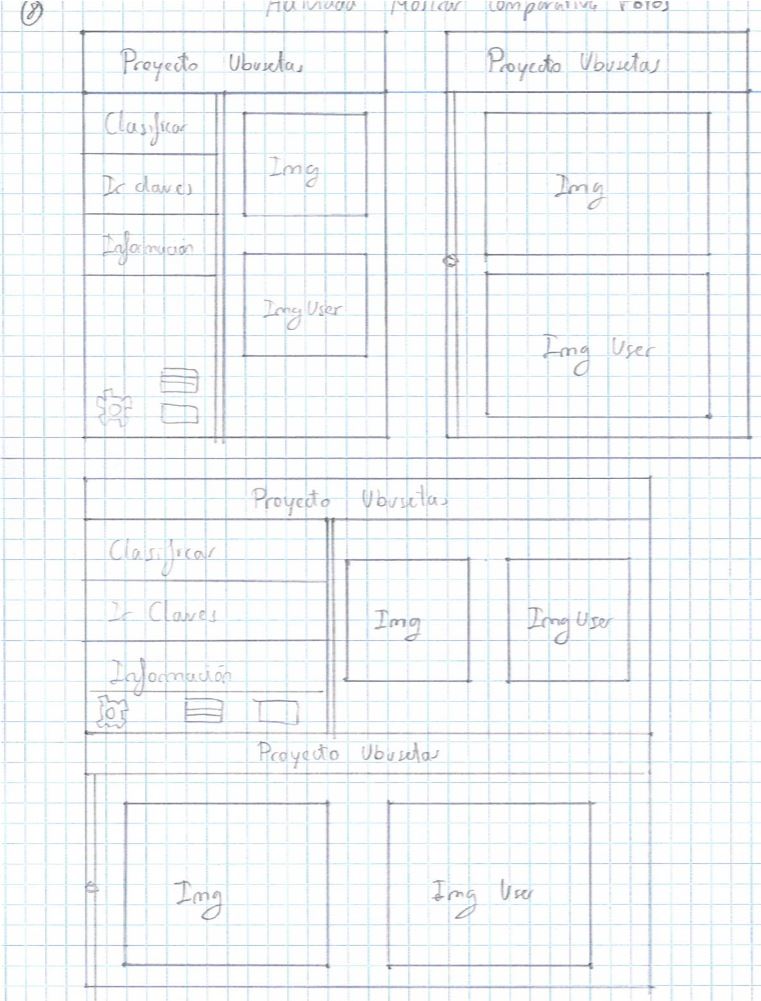 8
Mostrar Comparativa Fotos
Proyecto Ubusetas
Clasificar
Ir claves
Información
Img
Img User
Proyecto Ubusetas
Img
Img User
Proyecto Ubusetas
Clasificar
Ir Claves
Información
Img
Img User
Proyecto Ubusetas
Img
Img User